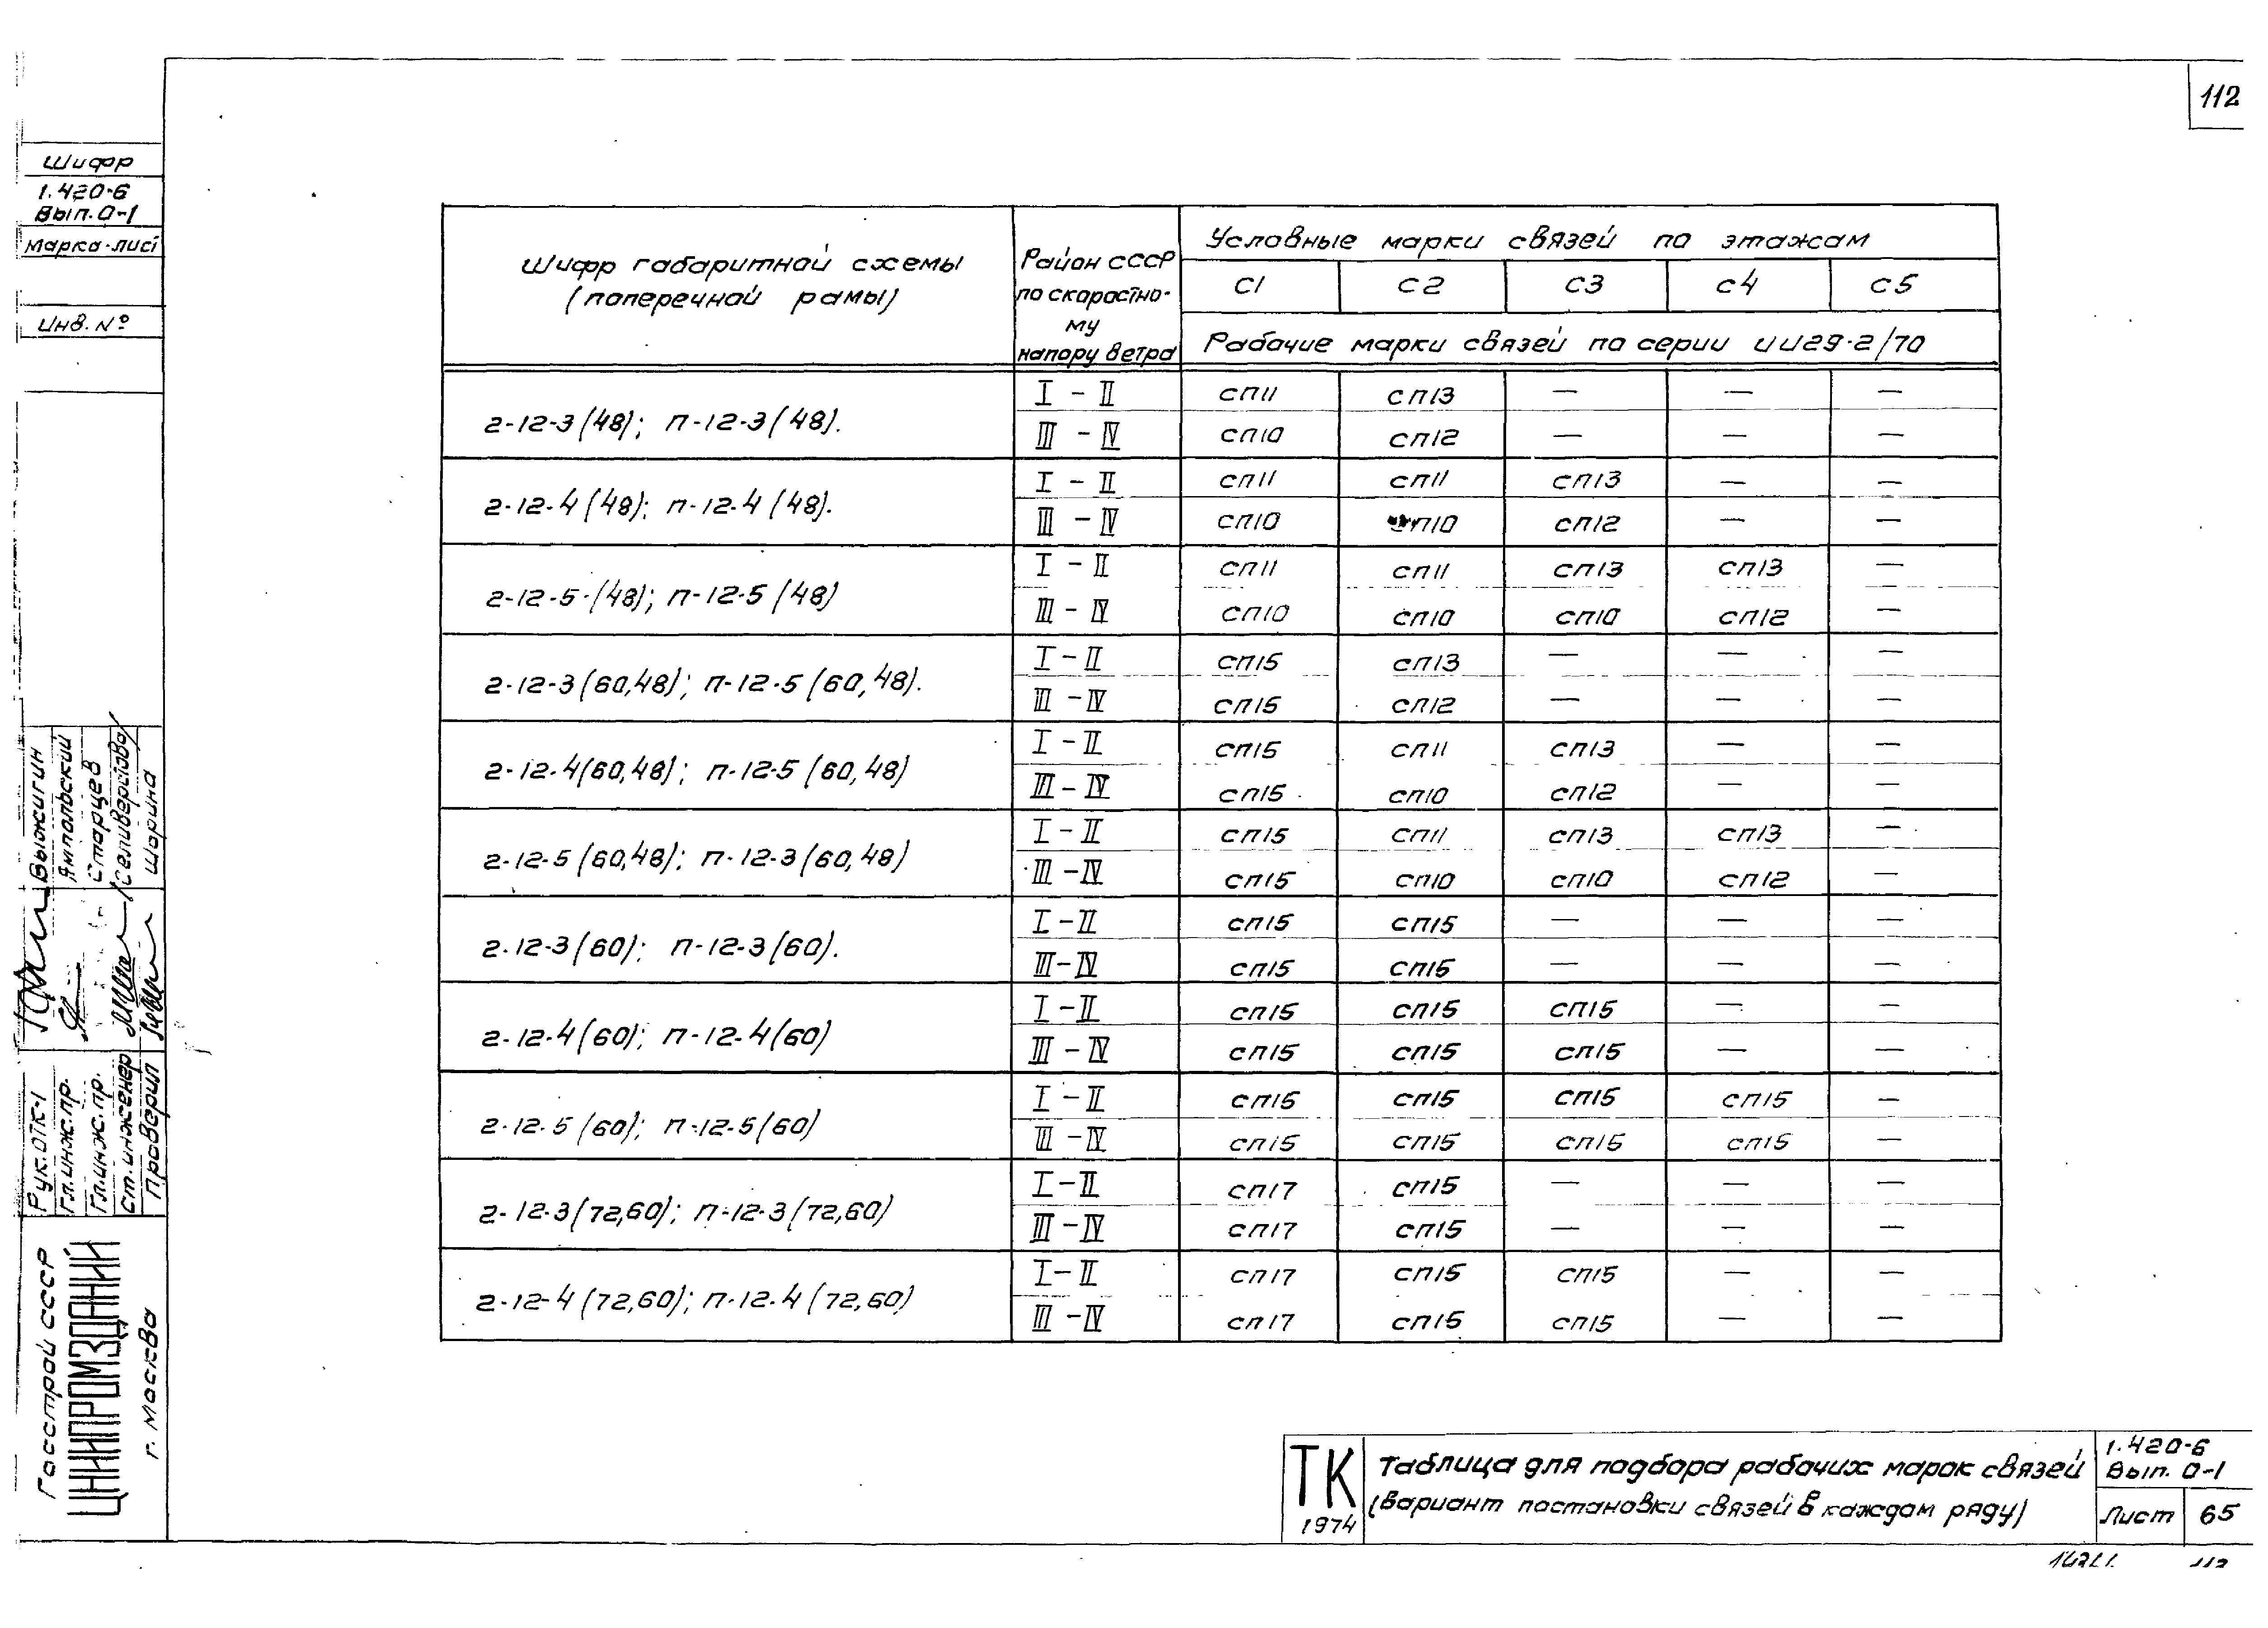 112
Шифр
1.420-6
Вып. 0-1
Марка-лист
Инв. №
Выжигин
Ямпольский
Старцев
/Селиверстова/
Шорина
Рук. ОТК-1
Гл. инж. пр.
Гл. инж. пр.
Ст. инженер
Проверил
Госстрой СССР
ЦНИИПРОМЗДАНИЙ
г. Москва
Шифр габаритной схемы (поперечной рамы) | Район СССР по скоростно-му напору ветра | Условные марки связей по этажам
С1 | С2 | С3 | С4 | С5
Рабочие марки связей по серии ИИ29-2/70
г-12-3 (48); п-12-3 (48). | I - II | СП11 | СП13 | — | — | —
III - IV | СП10 | СП12 | — | — | —
г-12-4 (48); п-12-4 (48). | I - II | СП11 | СП11 | СП13 | — | —
III - IV | СП10 | СП10 | СП12 | — | —
г-12-5-(48); п-12-5 (48) | I - II | СП11 | СП11 | СП13 | СП13 | —
III - IV | СП10 | СП10 | СП10 | СП12 | —
г-12-3 (60,48); п-12-5 (60,48). | I - II | СП15 | СП13 | — | — | —
III - IV | СП15 | СП12 | — | — | —
г-12-4 (60,48); п-12-5 (60,48) | I - II | СП15 | СП11 | СП13 | — | —
III - IV | СП15 | СП10 | СП12 | — | —
г-12-5 (60,48); п-12-3 (60,48) | I - II | СП15 | СП11 | СП13 | СП13 | —
III - IV | СП15 | СП10 | СП10 | СП12 | —
г-12-3 (60); п-12-3 (60). | I - II | СП15 | СП15 | — | — | —
III - IV | СП15 | СП15 | — | — | —
г-12-4 (60); п-12-4 (60) | I - II | СП15 | СП15 | СП15 | — | —
III - IV | СП15 | СП15 | СП15 | — | —
г-12-5 (60); п-12-5 (60) | I - II | СП15 | СП15 | СП15 | СП15 | —
III - IV | СП15 | СП15 | СП15 | СП15 | —
г-12-3 (72,60); п-12-3 (72,60) | I - II | СП17 | СП15 | — | — | —
III - IV | СП17 | СП15 | — | — | —
г-12-4 (72,60); п-12-4 (72,60) | I - II | СП17 | СП15 | СП15 | — | —
III - IV | СП17 | СП15 | СП15 | — | —
ТК
1974
Таблица для подбора рабочих марок связей
(Вариант постановки связей в каждом ряду)
1.420-6
Вып. 0-1
Лист 65